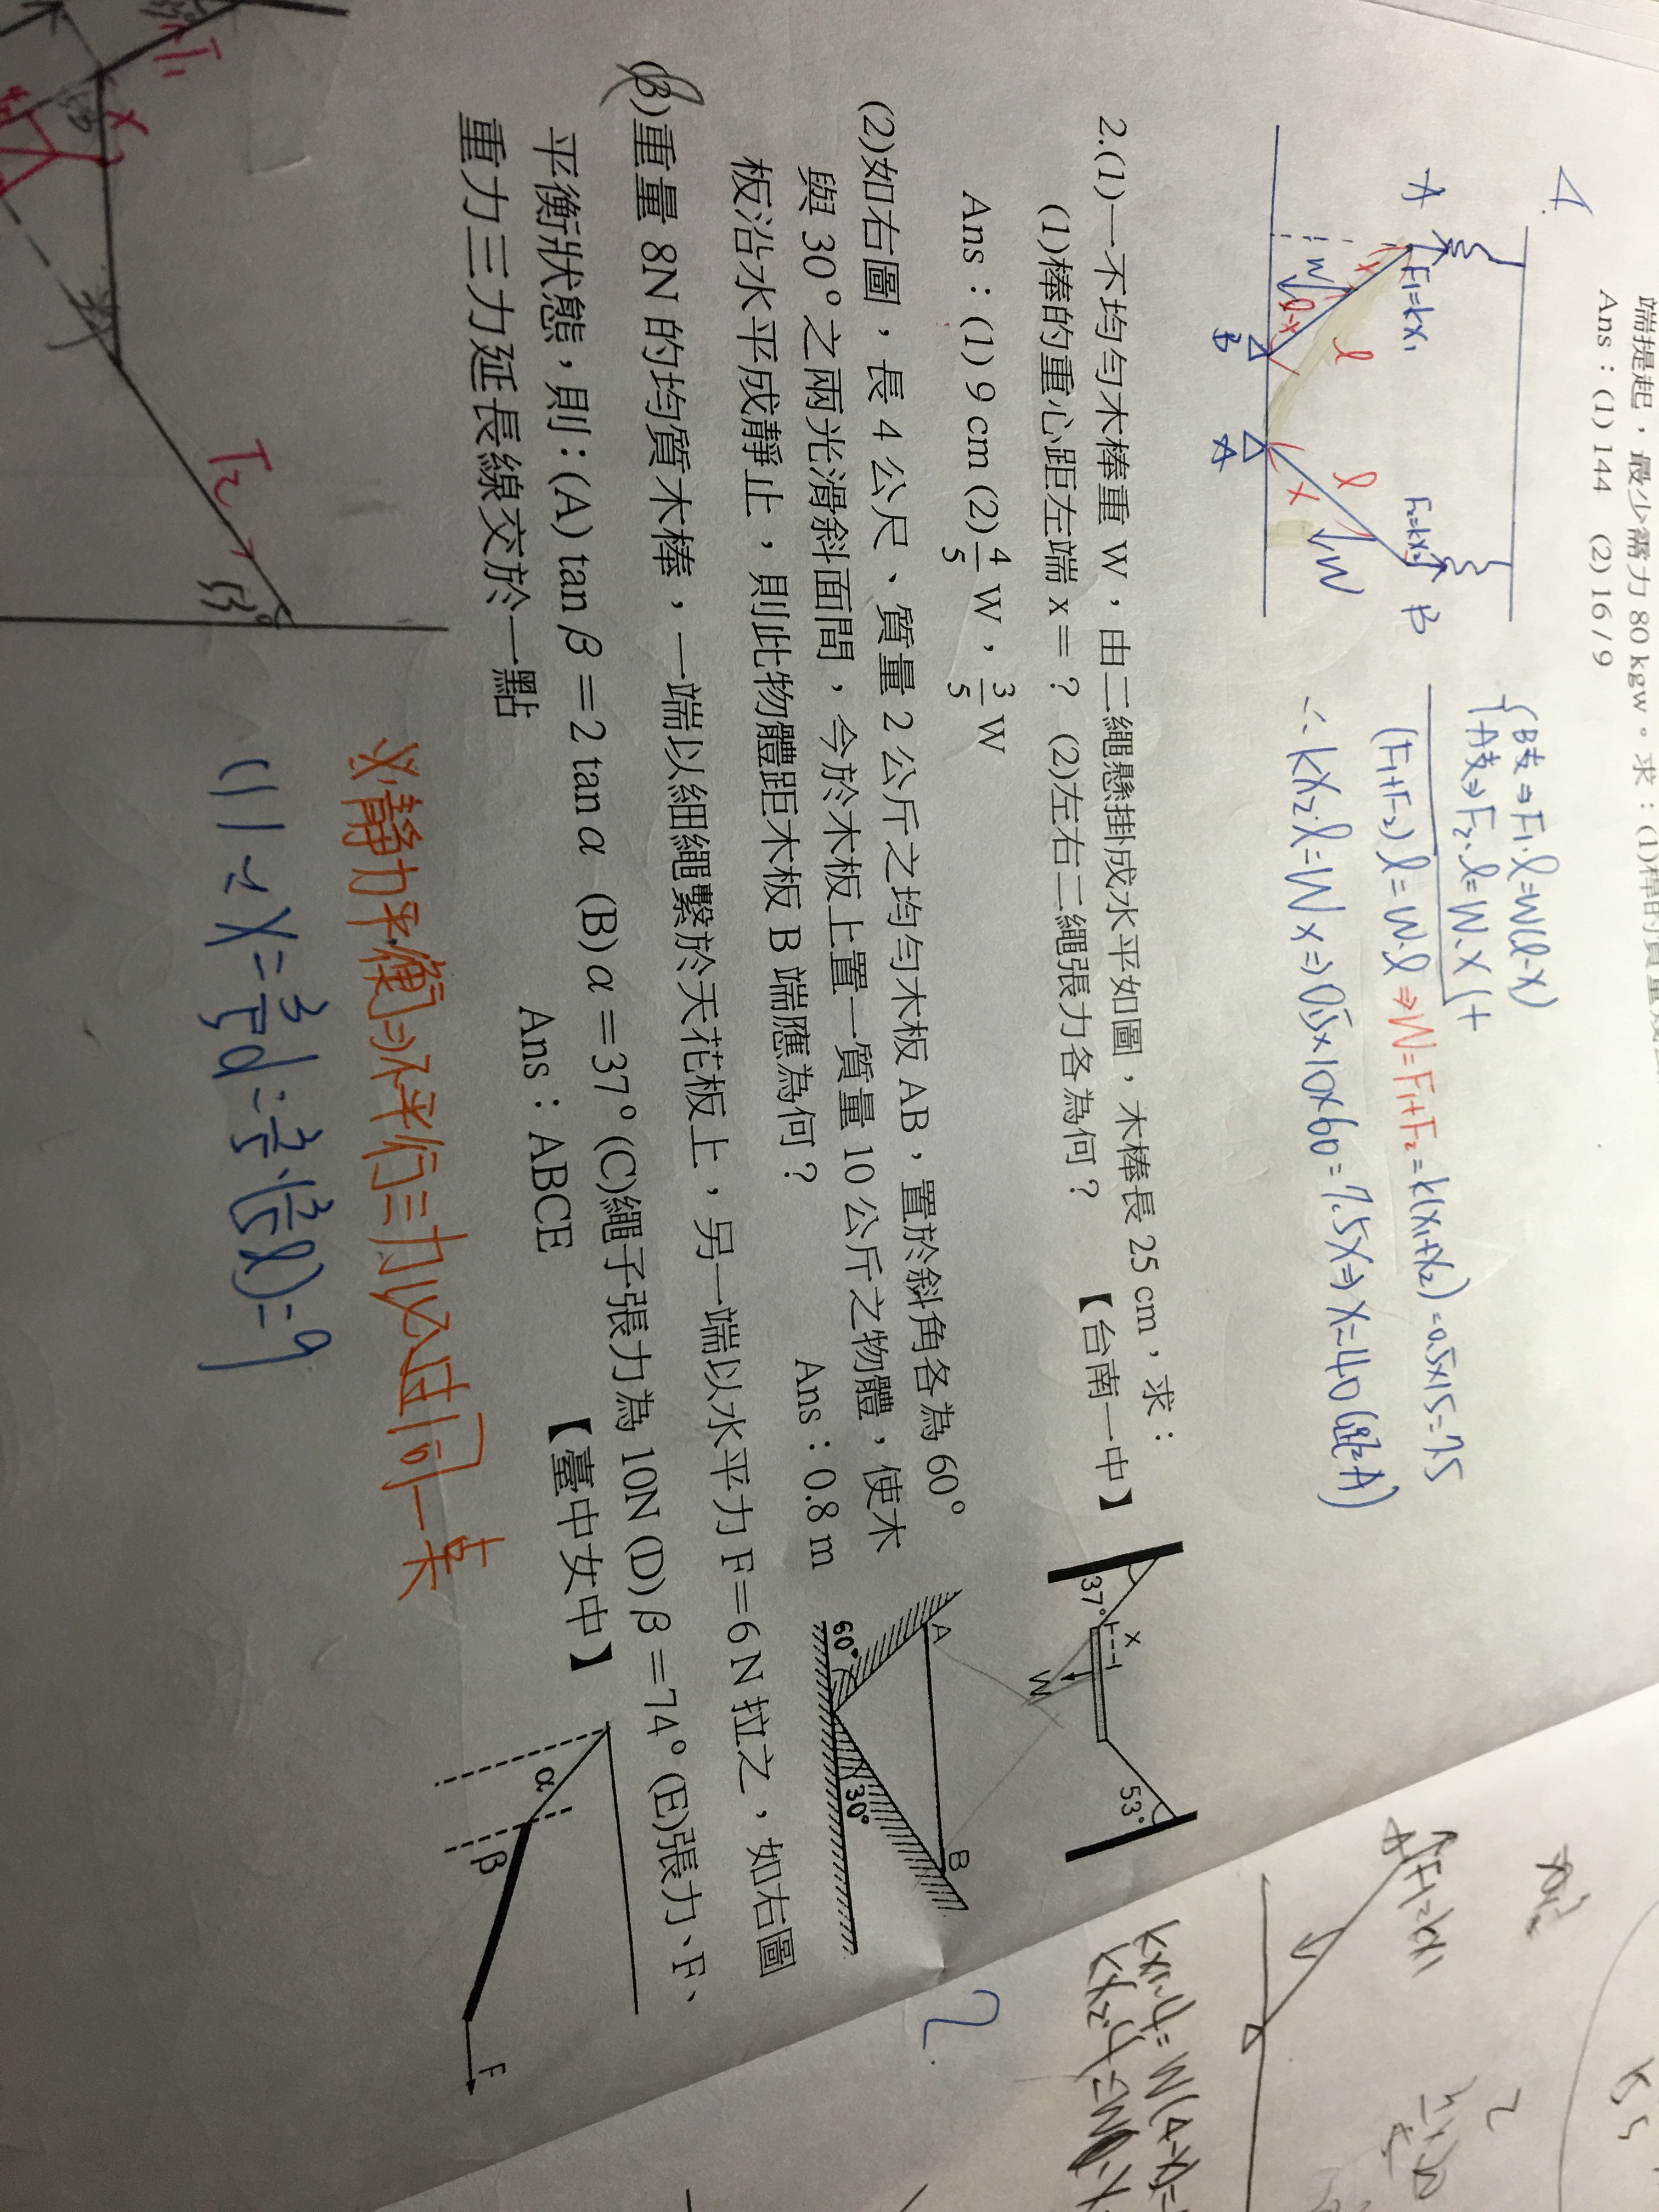 端提起，最少需力 80 kgw。求：(1)桿的質量
Ans：(1) 144 (2) 16 / 9
1.
F₁=kx₁
F₂=kx₂
A
B
x
l-x
l
W
B
A
l
x
W
B支⇒F₁·l=W(l-x)
A支⇒F₂·l=W·x
+
(F₁+F₂)l=W·l⇒W=F₁+F₂=k(x₁+x₂)=0.5×15=7.5
∴kx₂·l=Wx⇒0.5×10×60=7.5x⇒x=40
2.(1)一不均勻木棒重 W，由二繩懸掛成水平如圖，木棒長 25 cm，求：
(1)棒的重心距左端 x＝？ (2)左右二繩張力各為何？ 【台南一中】
Ans：(1) 9 cm (2) 4/5 W，3/5 W
37°
x
W
53°
(2)如右圖，長 4 公尺、質量 2 公斤之均勻木板 AB，置於斜角各為 60°
與 30°之兩光滑斜面間，今於木板上置一質量 10 公斤之物體，使木
板沿水平成靜止，則此物體距木板 B 端應為何？ Ans：0.8 m
A
B
60°
30°
2.
(3)重量 8N 的均質木棒，一端以細繩繫於天花板上，另一端以水平力 F＝6 N 拉之，如右圖
平衡狀態，則：(A) tan β＝2 tan α (B) α＝37° (C)繩子張力為 10N (D) β＝74° (E)張力、F、
重力三力延長線交於一點 Ans：ABCE 【臺中女中】
α
β
F
※靜力平衡⇒不平行三力必交於同一點
T₁
x
T₂
53°
F₁=kx₁